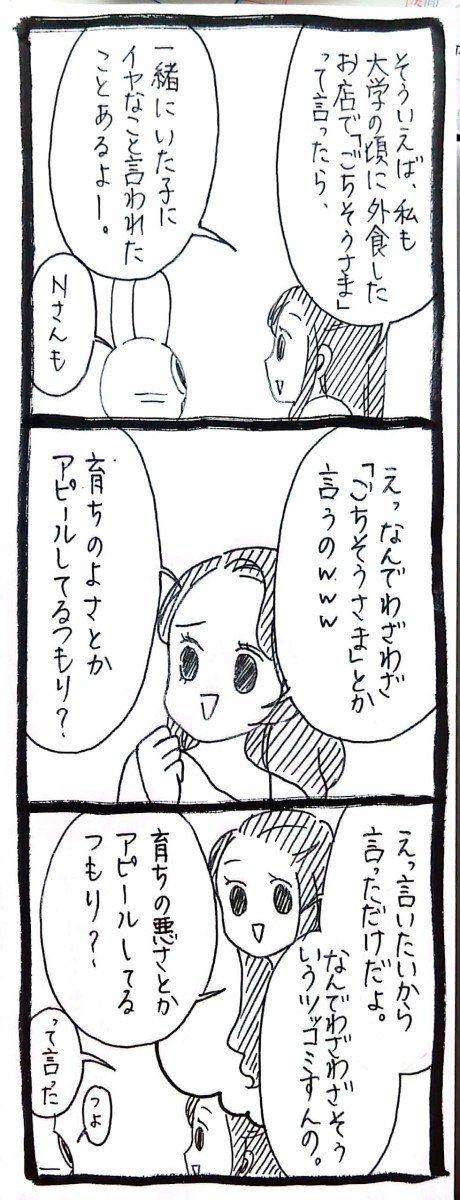 そういえば、私も
大学の頃に外食した
お店で「ごちそうさま」
って言ったら、
一緒にいた子に
イヤなこと言われた
ことあるよー。
Nさんも
えっなんでわざわざ
「ごちそうさま」とか
言うのwww
育ちのよさとか
アピールしてるつもり?
えっ言いたいから
言っただけだよ。
なんでわざわざそう
いうツッコミすんの。
育ちの悪さとか
アピールしてる
つもり?
って言った
つよ